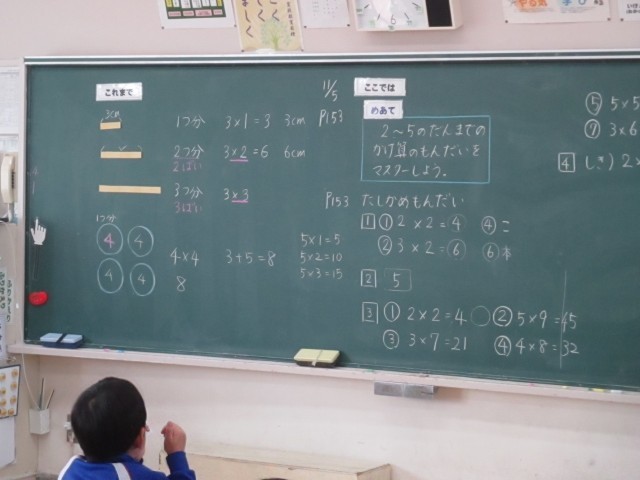 これまで
11/5
ここでは
3cm
1つ分 3×1=3 3cm P153
めあて
2つ分 3×2=6 6cm
2ばい
3つ分 3×3
3ばい
2〜5のだんまでの
かけ算のもんだいを
マスターしよう。
P153 たしかめもんだい
1つ分
4 4
4 4
4×4 3+5=8
8
5×1=5
5×2=10
5×3=15
1 ① 2×2=4 ④こ
② 3×2=6 ⑥本
2 5
3 ① 2×2=4 ② 5×9=45
③ 3×7=21 ④ 4×8=32
⑤ 5×5
⑦ 3×6
4 しき) 2×